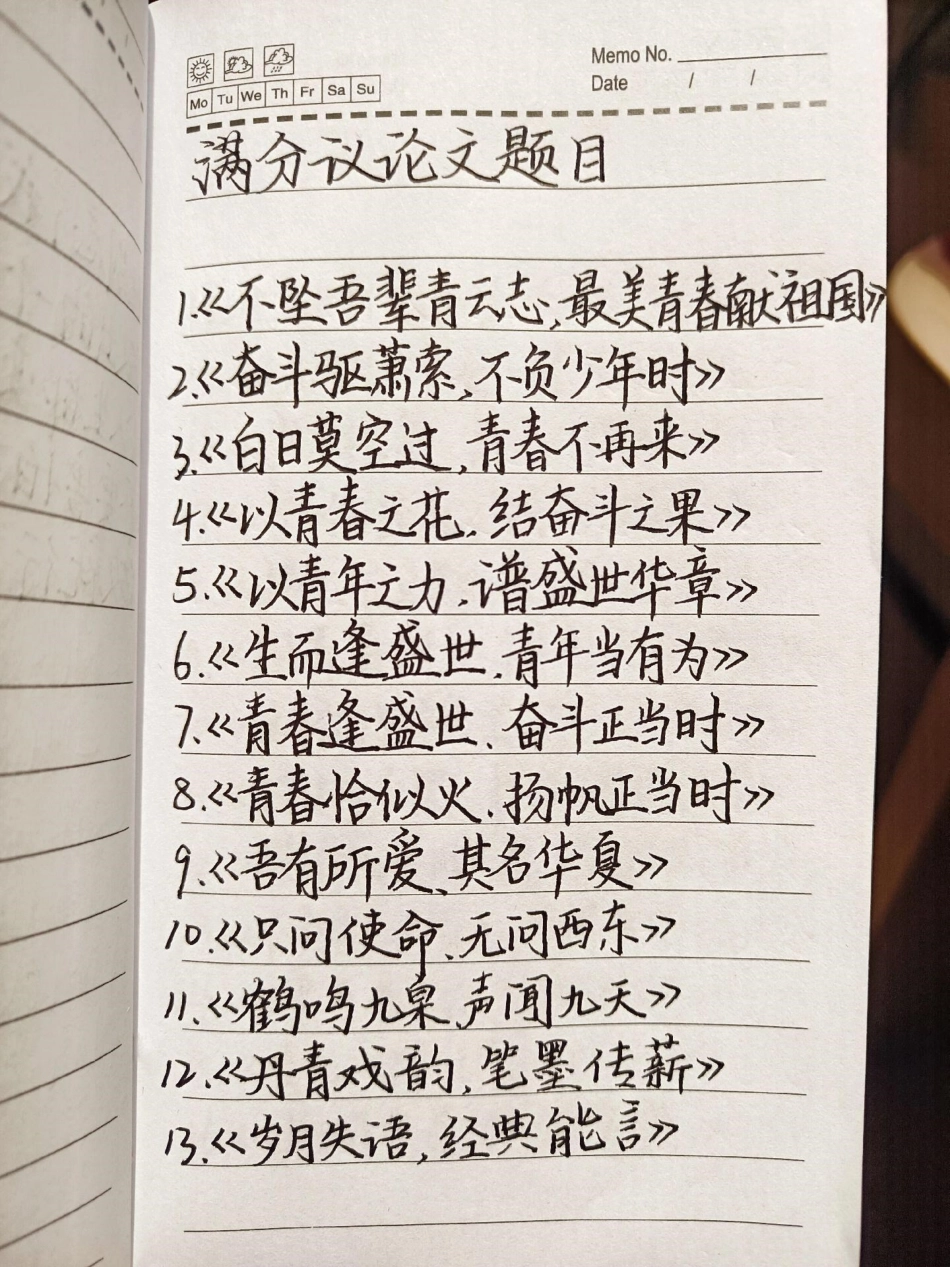 Memo No.
Mo Tu We Th Fr Sa Su
Date / /
满分议论文题目
1.《不坠吾辈青云志,最美青春献祖国》
2.《奋斗驱萧索,不负少年时》
3.《白日莫空过,青春不再来》
4.《以青春之花,结奋斗之果》
5.《以青年之力,谱盛世华章》
6.《生而逢盛世,青年当有为》
7.《青春逢盛世、奋斗正当时》
8.《青春恰似火、扬帆正当时》
9.《吾有所爱、其名华夏》
10.《只问使命、无问西东》
11.《鹤鸣九皋,声闻九天》
12.《丹青戏韵,笔墨传薪》
13.《岁月失语,经典能言》